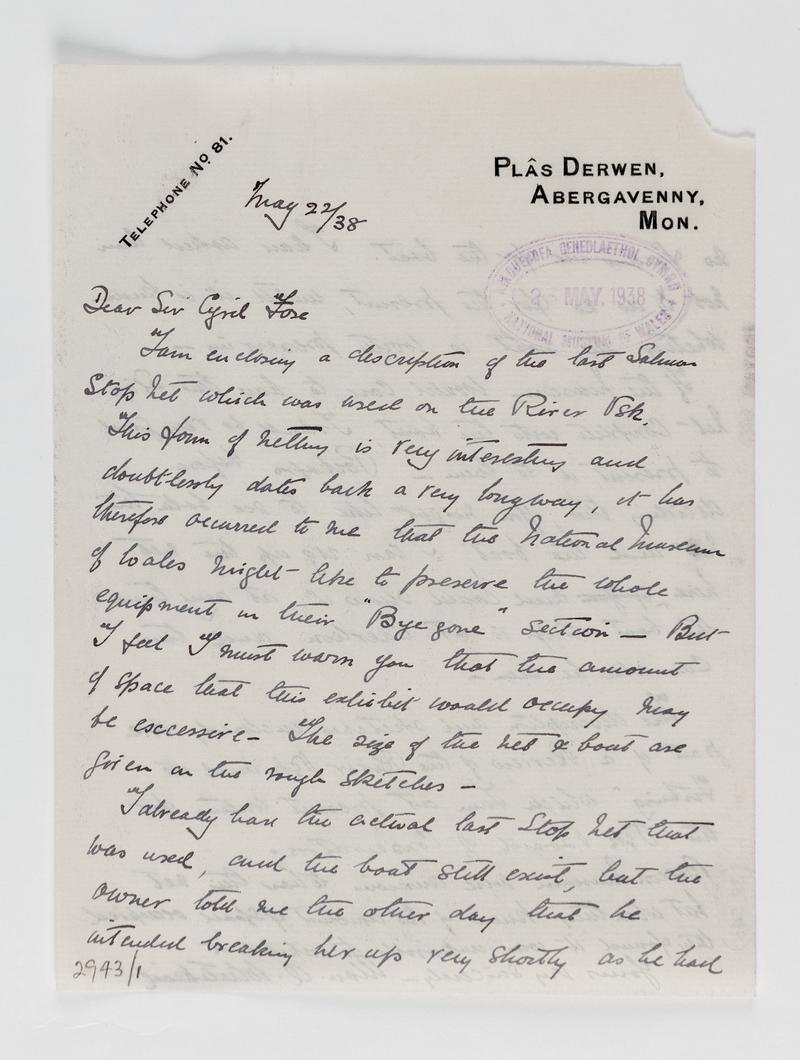 TELEPHONE No 81.
PLÂS DERWEN,
ABERGAVENNY,
MON.
May 22/38
AMGUEDDFA GENEDLAETHOL CYMRU
2 MAY. 1938
NATIONAL MUSEUM OF WALES
Dear Sir Cyril Foxe
I am enclosing a description of the last Salmon
Stop Net which was used on the River Usk.
This form of netting is very interesting and
doubtlessly dates back a very long way, it has
therefore occurred to me that the National Museum
of Wales might like to preserve the whole
equipment in their "Bye gone" section — But
I feel I must warn you that the amount
of space that this exhibit would occupy may
be excessive - The size of the net & boat are
given on the rough sketches -
I already have the actual last Stop Net that
was used, and the boat still exist, but the
owner told me the other day that he
intended breaking her up very shortly as he had
2943/1